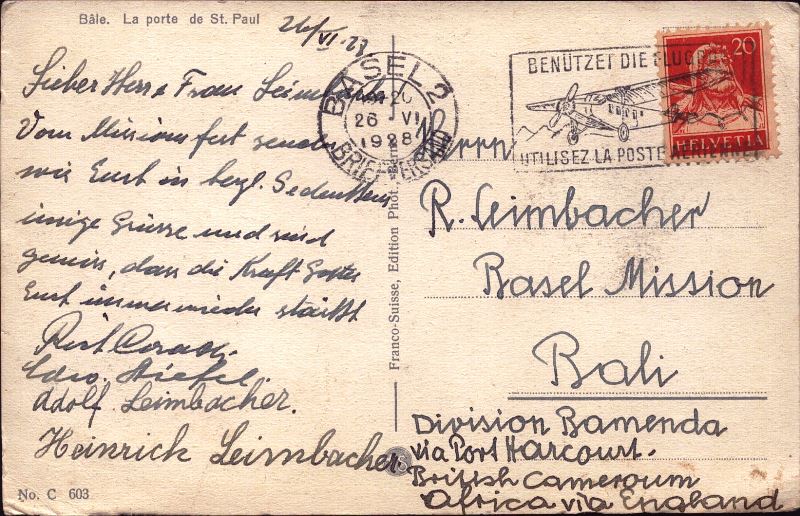 Bâle. La porte de St. Paul
26/VI.
Lieber Herr & Frau Leimbacher
Vom Missionsfest senden
wir Euch in herzl. Gedenken
innige Grüsse und sind
gewiss, dass die Kraft Gottes
Euch immer wieder stärkt
Adolf Leimbacher.
Heinrich Leimbacher
No. C 603
Franco-Suisse, Edition Phot.,
BASEL 2
26 VI
1928
BRIEFVERSAND
BENÜTZET DIE FLUGPOST
UTILISEZ LA POSTE AERIENNE
20
HELVETIA
Herrn
R. Leimbacher
Basel Mission
Bali
Division Bamenda
via Port Harcourt.
British Cameroum
Africa via England